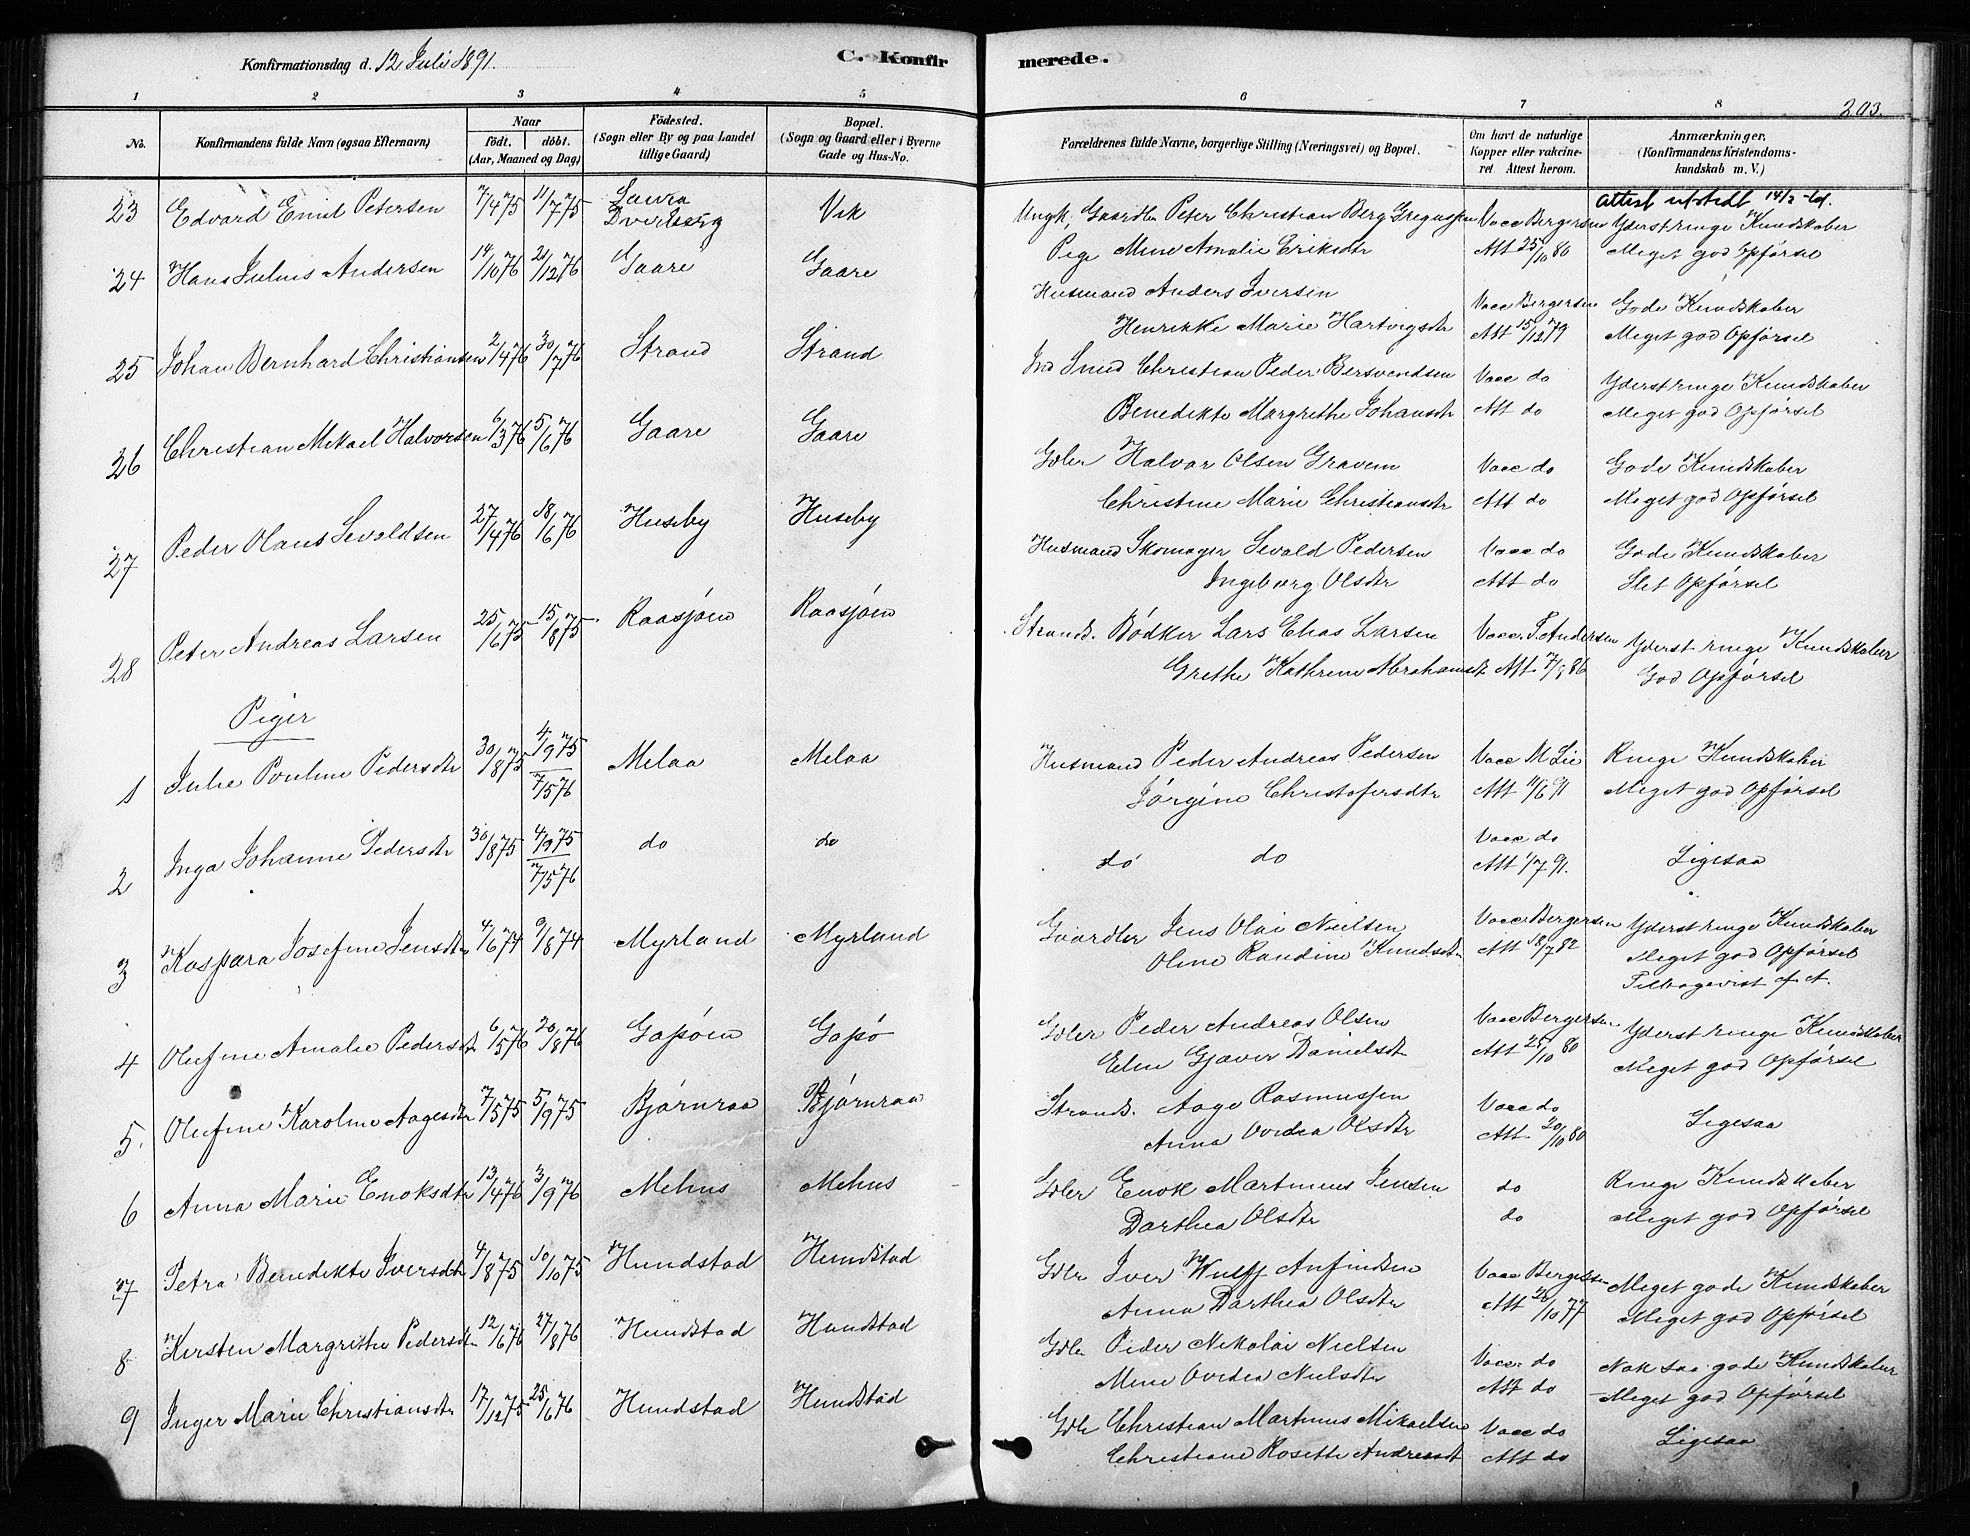 Konfirmationsdag d. 12 Juli 1891. C. Konfirmerede.
203.
1 2 3 4 5 6 7 8
No. Konfirmandens fulde Navn (ogsaa Efternavn) Naar födt. döbt. (Aar, Maaned og Dag) Födested. (Sogn eller By og paa Landet tillige Gaard) Bopæl. (Sogn og Gaard eller i Byerne Gade og Hus-No. Forældrenes fulde Navne, borgerlige Stilling (Næringsvei) og Bopæl. Om havt de naturlige Kopper eller vakcineret. Attest herom. Anmærkninger. (Konfirmandens Kristendomskundskab m. V.)
attest utstedt 14/3
23 Edvard Emil Petersen 7/4 75 11/7 75 Dverberg Vik Ungk. Gaardbr Peter Christian Berg Gregussen Vacc Bergersen Yderst ringe Kundskaber
Pige Mine Amalie Eriksdtr Att 25/10 80 Meget god Opførsel
24 Hans Julius Andersen 14/10 76 21/12 76 Gaare Gaare Husmand Anders Iversen Vacc Bergersen Gode Kundskaber
Henrikke Marie Hartvigsdtr Att 15/12 79 Meget god Opførsel
25 Johan Bernhard Christiansen 2/4 76 30/7 76 Strand Strand Ind Smed Christian Peder Bersvendsen Vacc do Yderst ringe Kundskaber
Benedikte Margrethe Johansdtr Att do Meget god Opførsel
26 Christian Mikael Halvorsen 6/3 76 5/6 76 Gaare Gaare Gdler Halvor Olsen Gravem Vacc do Gode Kundskaber
Christine Marie Christiansdtr Att do Meget god Opførsel
27 Peder Olaus Sevaldsen 27/4 76 18/6 76 Huseby Huseby Husmand Skomager Sevald Pedersen Vacc do Gode Kundskaber
Ingeborg Olsdtr Att do Slet Opførsel
28 Peter Andreas Larsen 25/6 75 15/8 75 Raasjøen Raasjøen Strands. Bødker Lars Elias Larsen Vacc. T. Andersen Yderst ringe Kundskaber
Grethe Kathrine Abrahamsdtr Att 7/9 86 God Opførsel
Piger
1 Julie Pouline Pedersdtr 30/8 75 4/9 75 7/5 76 Melaa Melaa Husmand Peder Andreas Pedersen Vacc M Lie Ringe Kundskaber
Jørgine Christofersdtr Att 11/6 91 Meget god Opførsel
2 Inga Johanne Pedersdtr 30/8 75 4/9 75 7/5 76 do do do do Vacc do Ligesaa
Att 1/7 91.
3 Kaspara Josefine Jensdtr 4/6 74 9/8 74 Myrland Myrland Gaardler Jens Olai Nielsen Vacc Bergersen Yderst ringe Kundskaber
Oline Randine Knudsdtr Att 18/7 82 Meget god Opførsel
Tilbagevist f. A.
4 Olufine Amalie Pedersdtr 6/5 76 20/8 76 Gapøen Gapø Gdler Peder Andreas Olsen Vacc Bergersen Yderst ringe Kundskaber
Elen Gjæver Danielsdtr Att 25/10 80 Meget god Opførsel
5. Olufine Karoline Aagesdtr 7/5 75 5/9 75 Bjørnraa Bjørnraa Strands. Aage Rasmussen Vacc do Ligesaa
Anna Ovidia Olsdtr Att 20/10 80
6 Anna Marie Enoksdtr 13/4 76 3/9 76 Mehus Mehus Gdler Enok Martinus Jensen do Ringe Kundskaber
Darthea Olsdtr do Meget god Opførsel
7 Petra Benedikte Iversdtr 4/8 75 10/10 75 Hundstad Hundstad Gdlr Iver Wulff Anfindsen Vacc Bergersen Meget gode Kundskaber
Anna Darthea Olsdtr Att 26/10 77 Meget god Opførsel
8 Kirsten Margrethe Pedersdtr 12/6 76 27/8 76 Hundstad Hundstad Gdlr Peder Nikolai Nielsen Vacc. do Nok saa gode Kundskaber
Mine Ovidia Nielsdtr Att do Meget god Opførsel
9 Inger Marie Christiansdtr 17/12 75 25/6 76 Hundstad Hundstad Gdlr Christian Martinus Mikaelsen Vacc do Ligesaa
Christiane Rosette Andreasdtr Att do